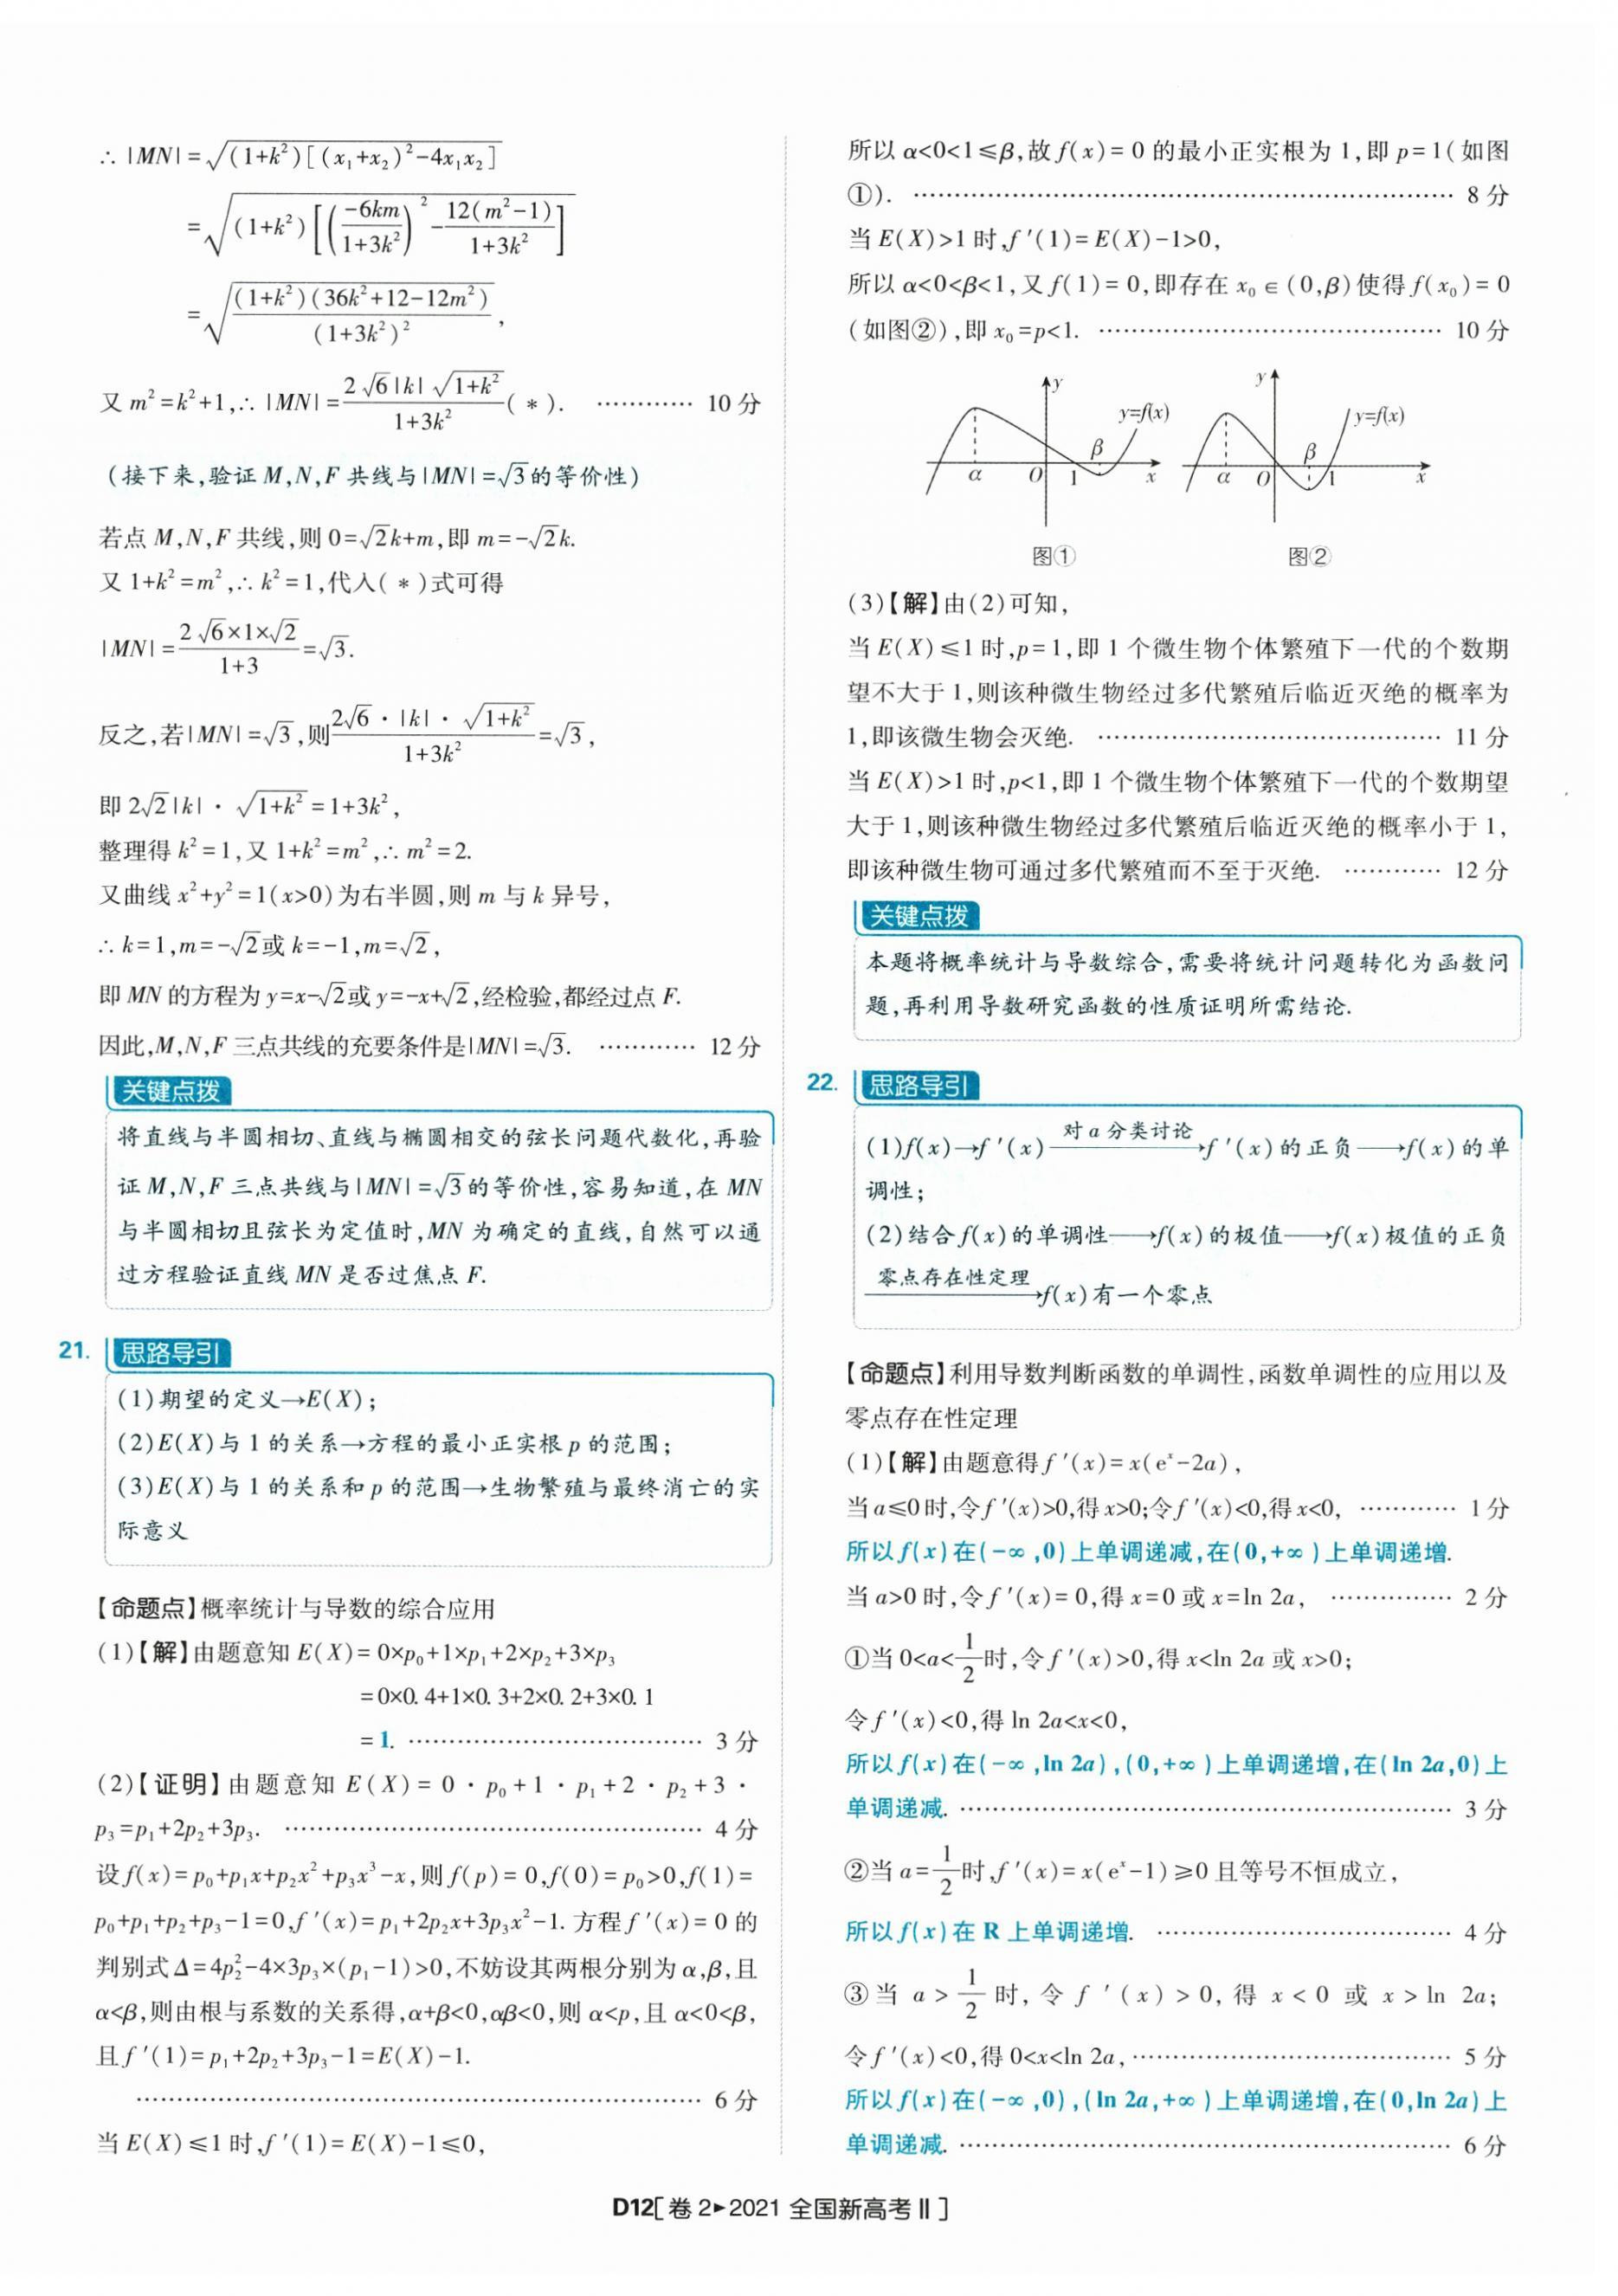 ∴ |MN|=√((1+k²)[(x₁+x₂)²-4x₁x₂])
=√((1+k²)[(-6km/(1+3k²))²-12(m²-1)/(1+3k²)])
=√((1+k²)(36k²+12-12m²)/(1+3k²)²),
又 m²=k²+1,∴ |MN|=2√6|k|√(1+k²)/(1+3k²)(*). ………… 10 分
(接下来,验证 M,N,F 共线与|MN|=√3的等价性)
若点 M,N,F 共线,则 0=√2k+m,即 m=-√2k.
又 1+k²=m²,∴ k²=1,代入(*)式可得
|MN|=2√6×1×√2/(1+3)=√3.
反之,若|MN|=√3,则2√6·|k|·√(1+k²)/(1+3k²)=√3,
即 2√2|k|·√(1+k²)=1+3k²,
整理得 k²=1,又 1+k²=m²,∴ m²=2.
又曲线 x²+y²=1(x>0)为右半圆,则 m 与 k 异号,
∴ k=1,m=-√2或 k=-1,m=√2,
即 MN 的方程为 y=x-√2或 y=-x+√2,经检验,都经过点 F.
因此,M,N,F 三点共线的充要条件是|MN|=√3. ………… 12 分
关键点拨
将直线与半圆相切、直线与椭圆相交的弦长问题代数化,再验
证 M,N,F 三点共线与|MN|=√3的等价性,容易知道,在 MN
与半圆相切且弦长为定值时,MN 为确定的直线,自然可以通
过方程验证直线 MN 是否过焦点 F.
21. 思路导引
(1)期望的定义→E(X);
(2)E(X)与 1 的关系→方程的最小正实根 p 的范围;
(3)E(X)与 1 的关系和 p 的范围→生物繁殖与最终消亡的实
际意义
【命题点】概率统计与导数的综合应用
(1)【解】由题意知 E(X)=0×p₀+1×p₁+2×p₂+3×p₃
=0×0.4+1×0.3+2×0.2+3×0.1
=1. ……………………………… 3 分
(2)【证明】由题意知 E(X)=0·p₀+1·p₁+2·p₂+3·
p₃=p₁+2p₂+3p₃. …………………………………………… 4 分
设 f(x)=p₀+p₁x+p₂x²+p₃x³-x,则 f(p)=0,f(0)=p₀>0,f(1)=
p₀+p₁+p₂+p₃-1=0,f′(x)=p₁+2p₂x+3p₃x²-1. 方程 f′(x)=0 的
判别式 Δ=4p₂²-4×3p₃×(p₁-1)>0,不妨设其两根分别为 α,β,且
α<β,则由根与系数的关系得,α+β<0,αβ<0,则 α<p,且 α<0<β,
且 f′(1)=p₁+2p₂+3p₃-1=E(X)-1.
…………………………………………………………… 6 分
当 E(X)≤1 时,f′(1)=E(X)-1≤0,
所以 α<0<1≤β,故 f(x)=0 的最小正实根为 1,即 p=1(如图
①). ………………………………………………………… 8 分
当 E(X)>1 时,f′(1)=E(X)-1>0,
所以 α<0<β<1,又 f(1)=0,即存在 x₀∈(0,β)使得 f(x₀)=0
(如图②),即 x₀=p<1. …………………………………… 10 分
y
y=f(x)
β
α
O
1
x
y
y=f(x)
β
α
O
1
x
图①
图②
(3)【解】由(2)可知,
当 E(X)≤1 时,p=1,即 1 个微生物个体繁殖下一代的个数期
望不大于 1,则该种微生物经过多代繁殖后临近灭绝的概率为
1,即该微生物会灭绝. …………………………………… 11 分
当 E(X)>1 时,p<1,即 1 个微生物个体繁殖下一代的个数期望
大于 1,则该种微生物经过多代繁殖后临近灭绝的概率小于 1,
即该种微生物可通过多代繁殖而不至于灭绝. ………… 12 分
关键点拨
本题将概率统计与导数综合,需要将统计问题转化为函数问
题,再利用导数研究函数的性质证明所需结论.
22. 思路导引
(1)f(x)→f′(x)——对 a 分类讨论→f′(x)的正负——→f(x)的单
调性;
(2)结合 f(x)的单调性——→f(x)的极值——→f(x)极值的正负
——零点存在性定理→f(x)有一个零点
【命题点】利用导数判断函数的单调性,函数单调性的应用以及
零点存在性定理
(1)【解】由题意得 f′(x)=x(eˣ-2a),
当 a≤0 时,令 f′(x)>0,得 x>0;令 f′(x)<0,得 x<0, ………… 1 分
所以 f(x)在(-∞,0)上单调递减,在(0,+∞)上单调递增.
当 a>0 时,令 f′(x)=0,得 x=0 或 x=ln 2a, …………… 2 分
①当 0<a<1/2时,令 f′(x)>0,得 x<ln 2a 或 x>0;
令 f′(x)<0,得 ln 2a<x<0,
所以 f(x)在(-∞,ln 2a),(0,+∞)上单调递增,在(ln 2a,0)上
单调递减. …………………………………………………… 3 分
②当 a=1/2时,f′(x)=x(eˣ-1)≥0 且等号不恒成立,
所以 f(x)在 R 上单调递增. ……………………………… 4 分
③当 a>1/2时,令 f′(x)>0,得 x<0 或 x>ln 2a;
令 f′(x)<0,得 0<x<ln 2a, ………………………………… 5 分
所以 f(x)在(-∞,0),(ln 2a,+∞)上单调递增,在(0,ln 2a)上
单调递减. …………………………………………………… 6 分
D12[卷 2▶2021 全国新高考Ⅱ]